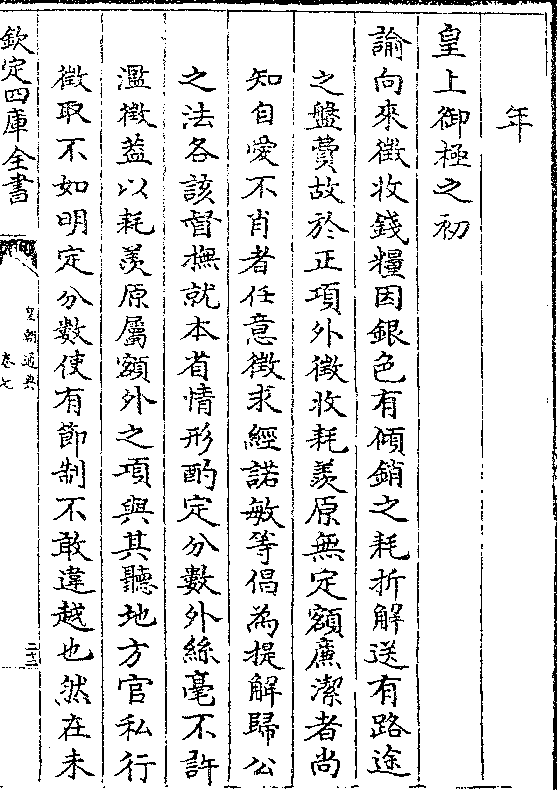 年
皇上御極之初
諭向來徵收錢糧因銀色有傾銷之耗折解送有路途
之盤費故於正項外徵收耗羨原無定額廉潔者尚
知自愛不肖者任意徵求經諾敏等倡為提解歸公
之法各該督撫就本省情形酌定分數外絲毫不許
濫徵葢以耗羨原屬額外之項與其聽地方官私行
徵取不如明定分數使有節制不敢違越也然在未
欽定四庫全書
皇朝通典
卷七
二十三